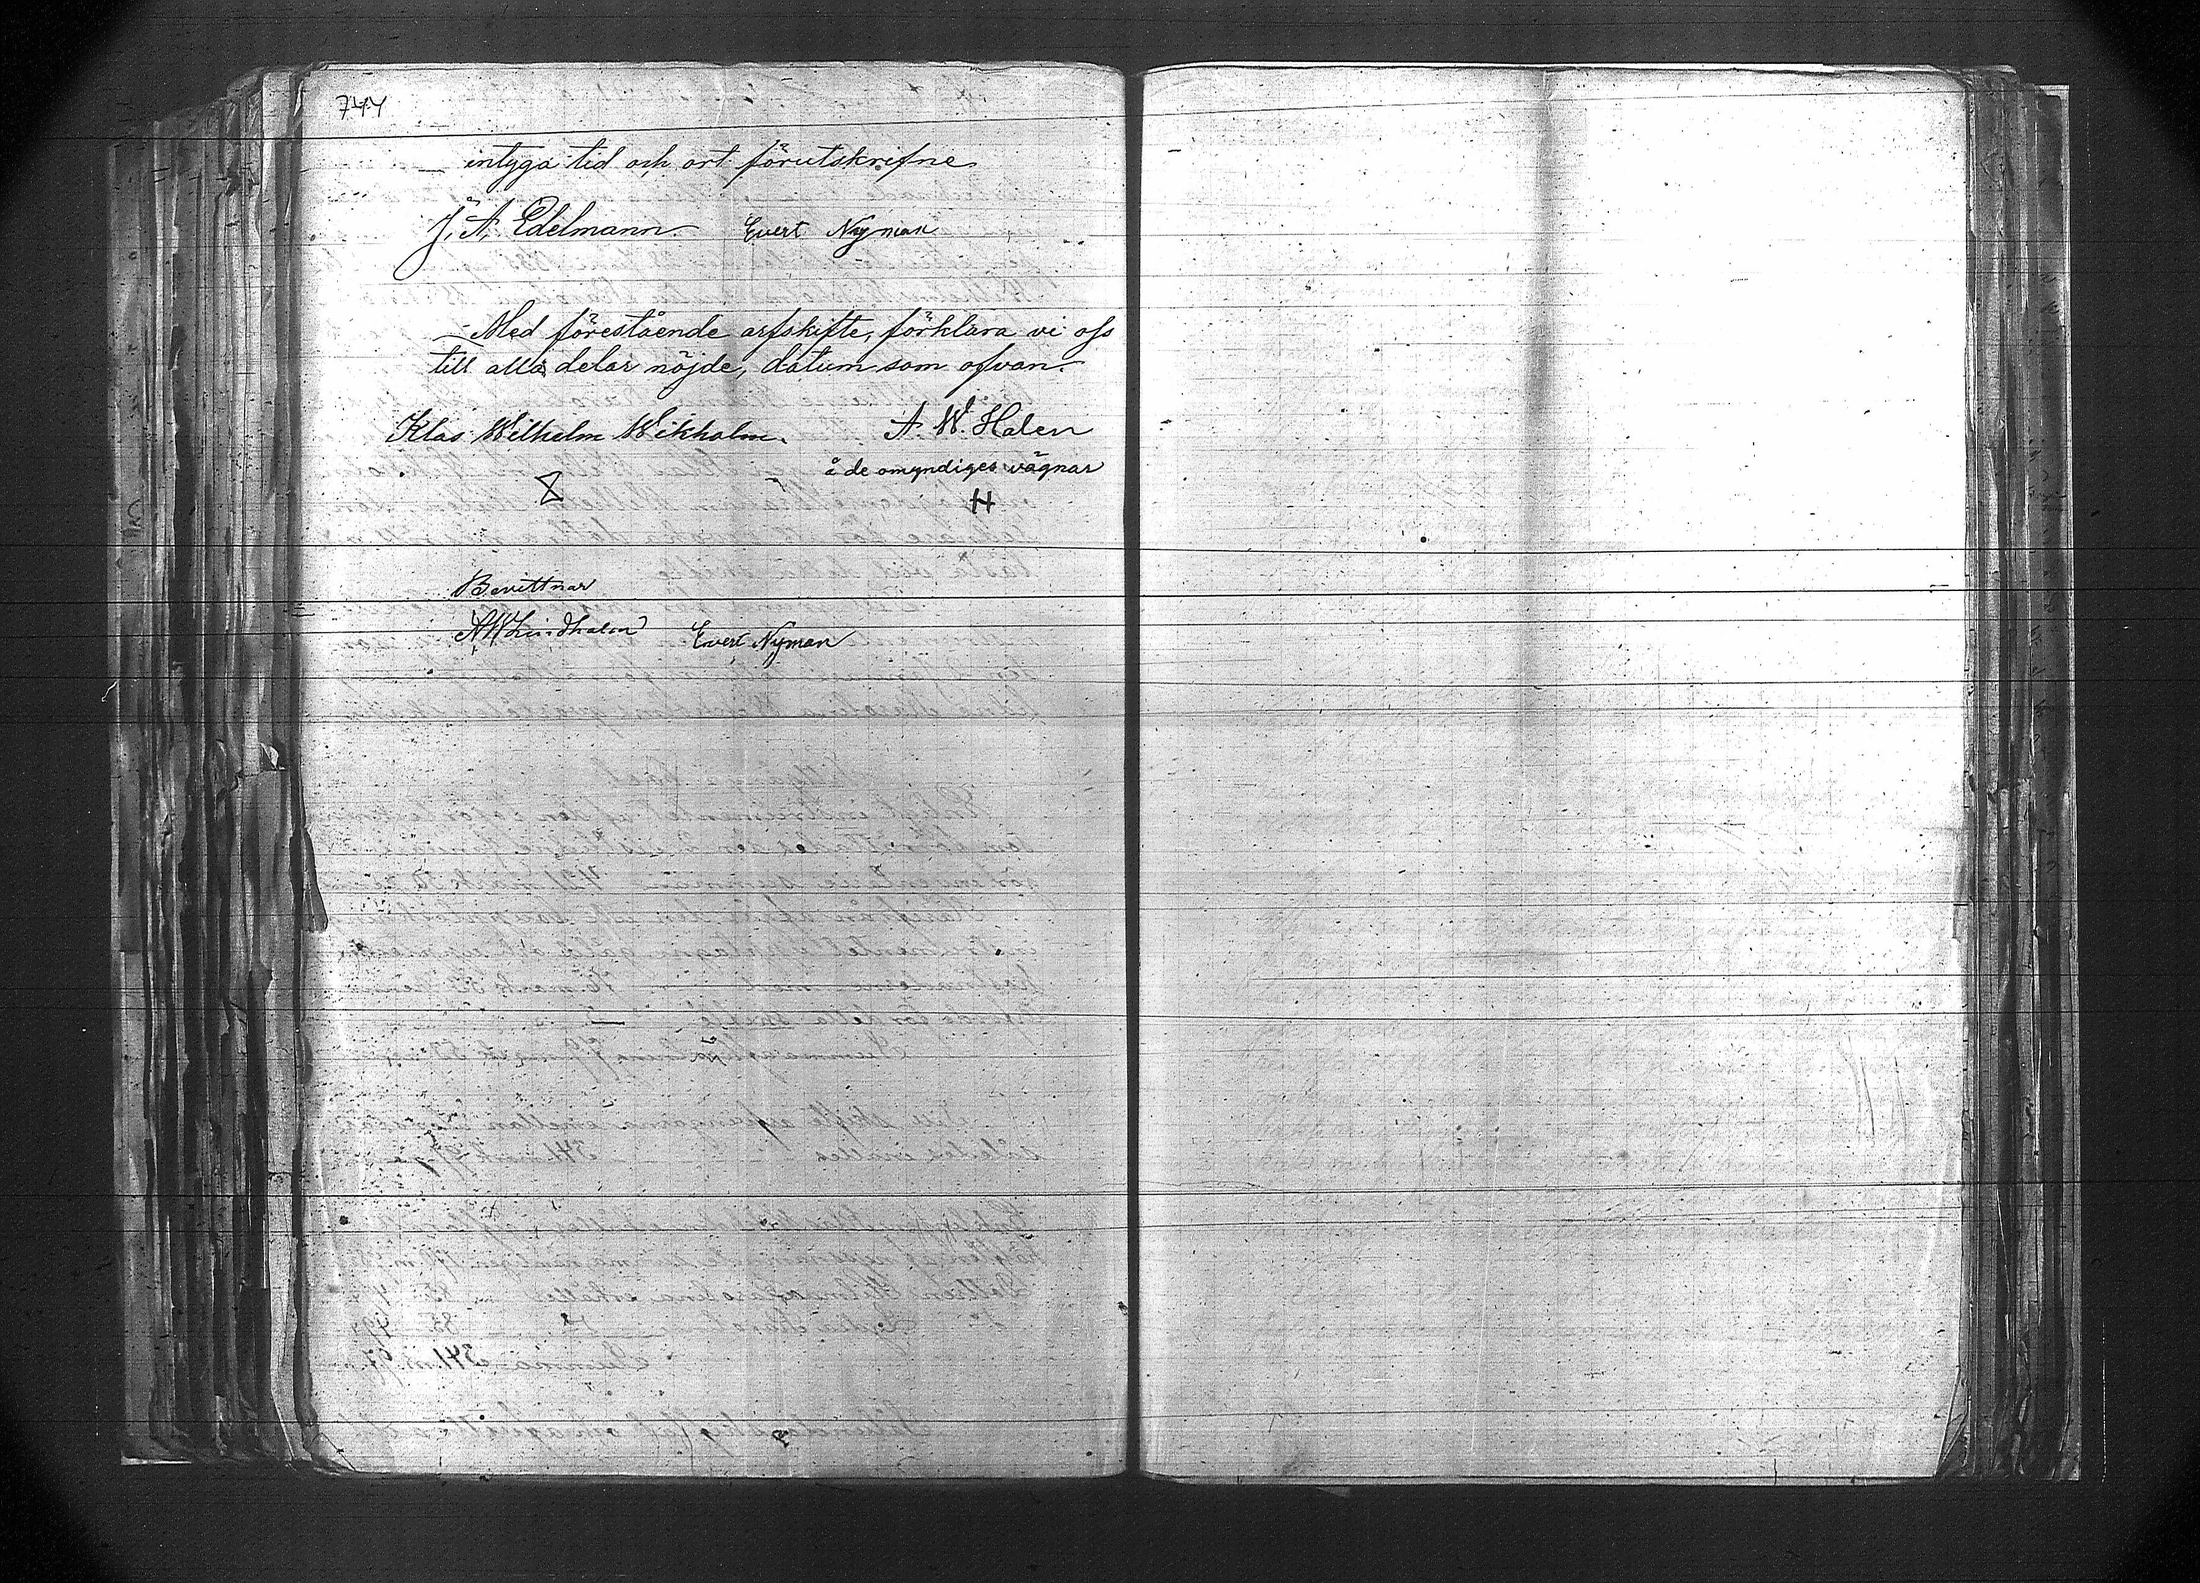 744
intyga tid och ort förutskrifne
J. A. Edelmann Evert Nyman
Med förestående arfskifte, förklara vi oss
till alla delar nöjde, datum som ofvan.
Klas Wilhelm Wikholm. A. W. Halen
å de omyndiges vägnar
H
Bevittnar
A W Lindholm Evert Nyman